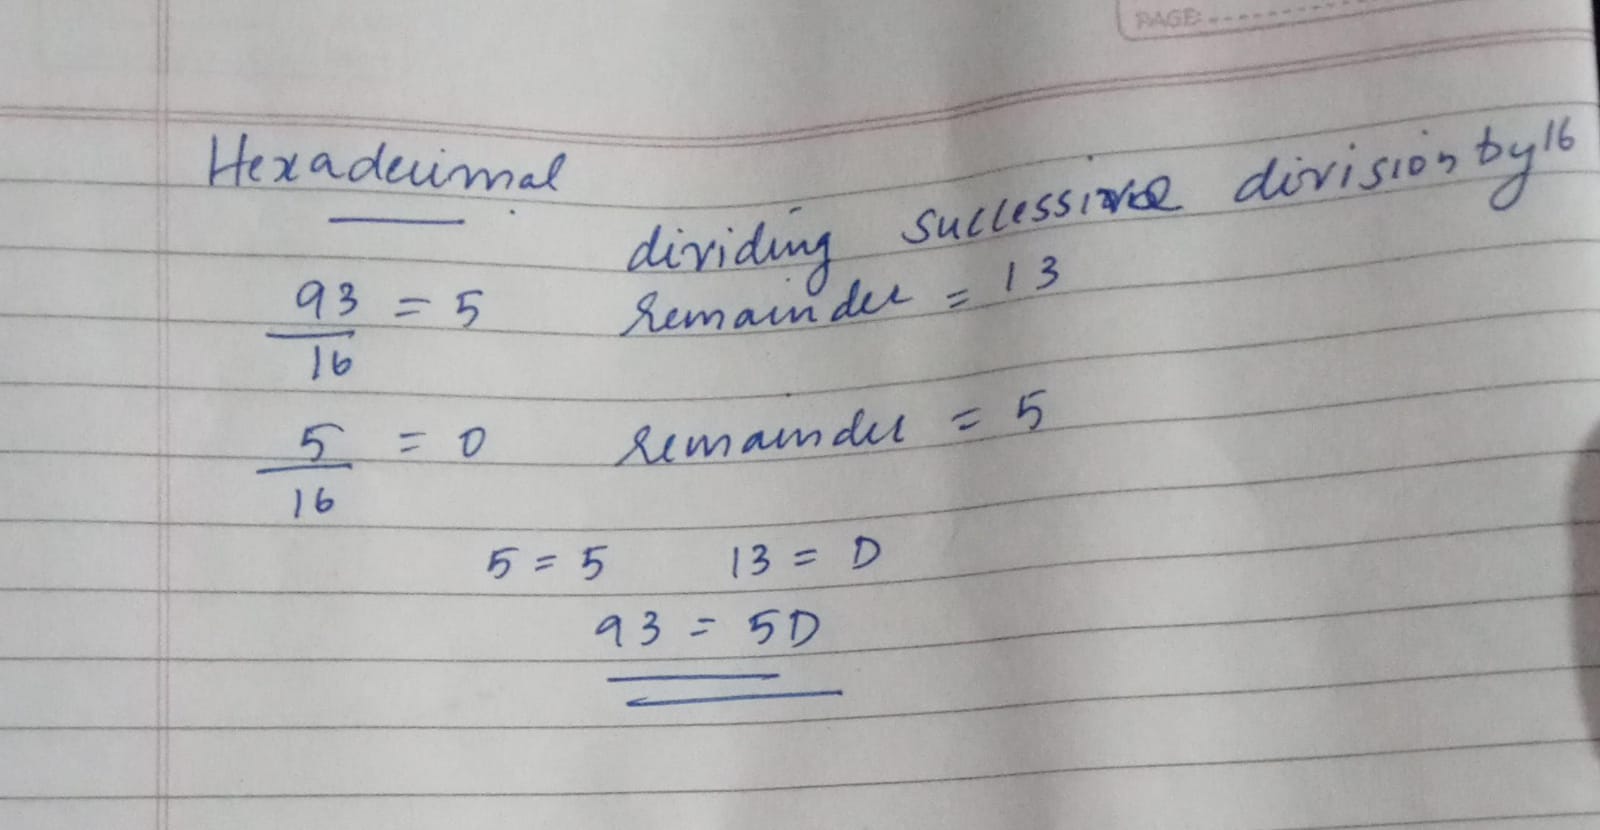 PAGE:
Hexadecimal
dividing successive division by 16
93/16 = 5 remainder = 13
5/16 = 0 remainder = 5
5 = 5 13 = D
93 = 5D